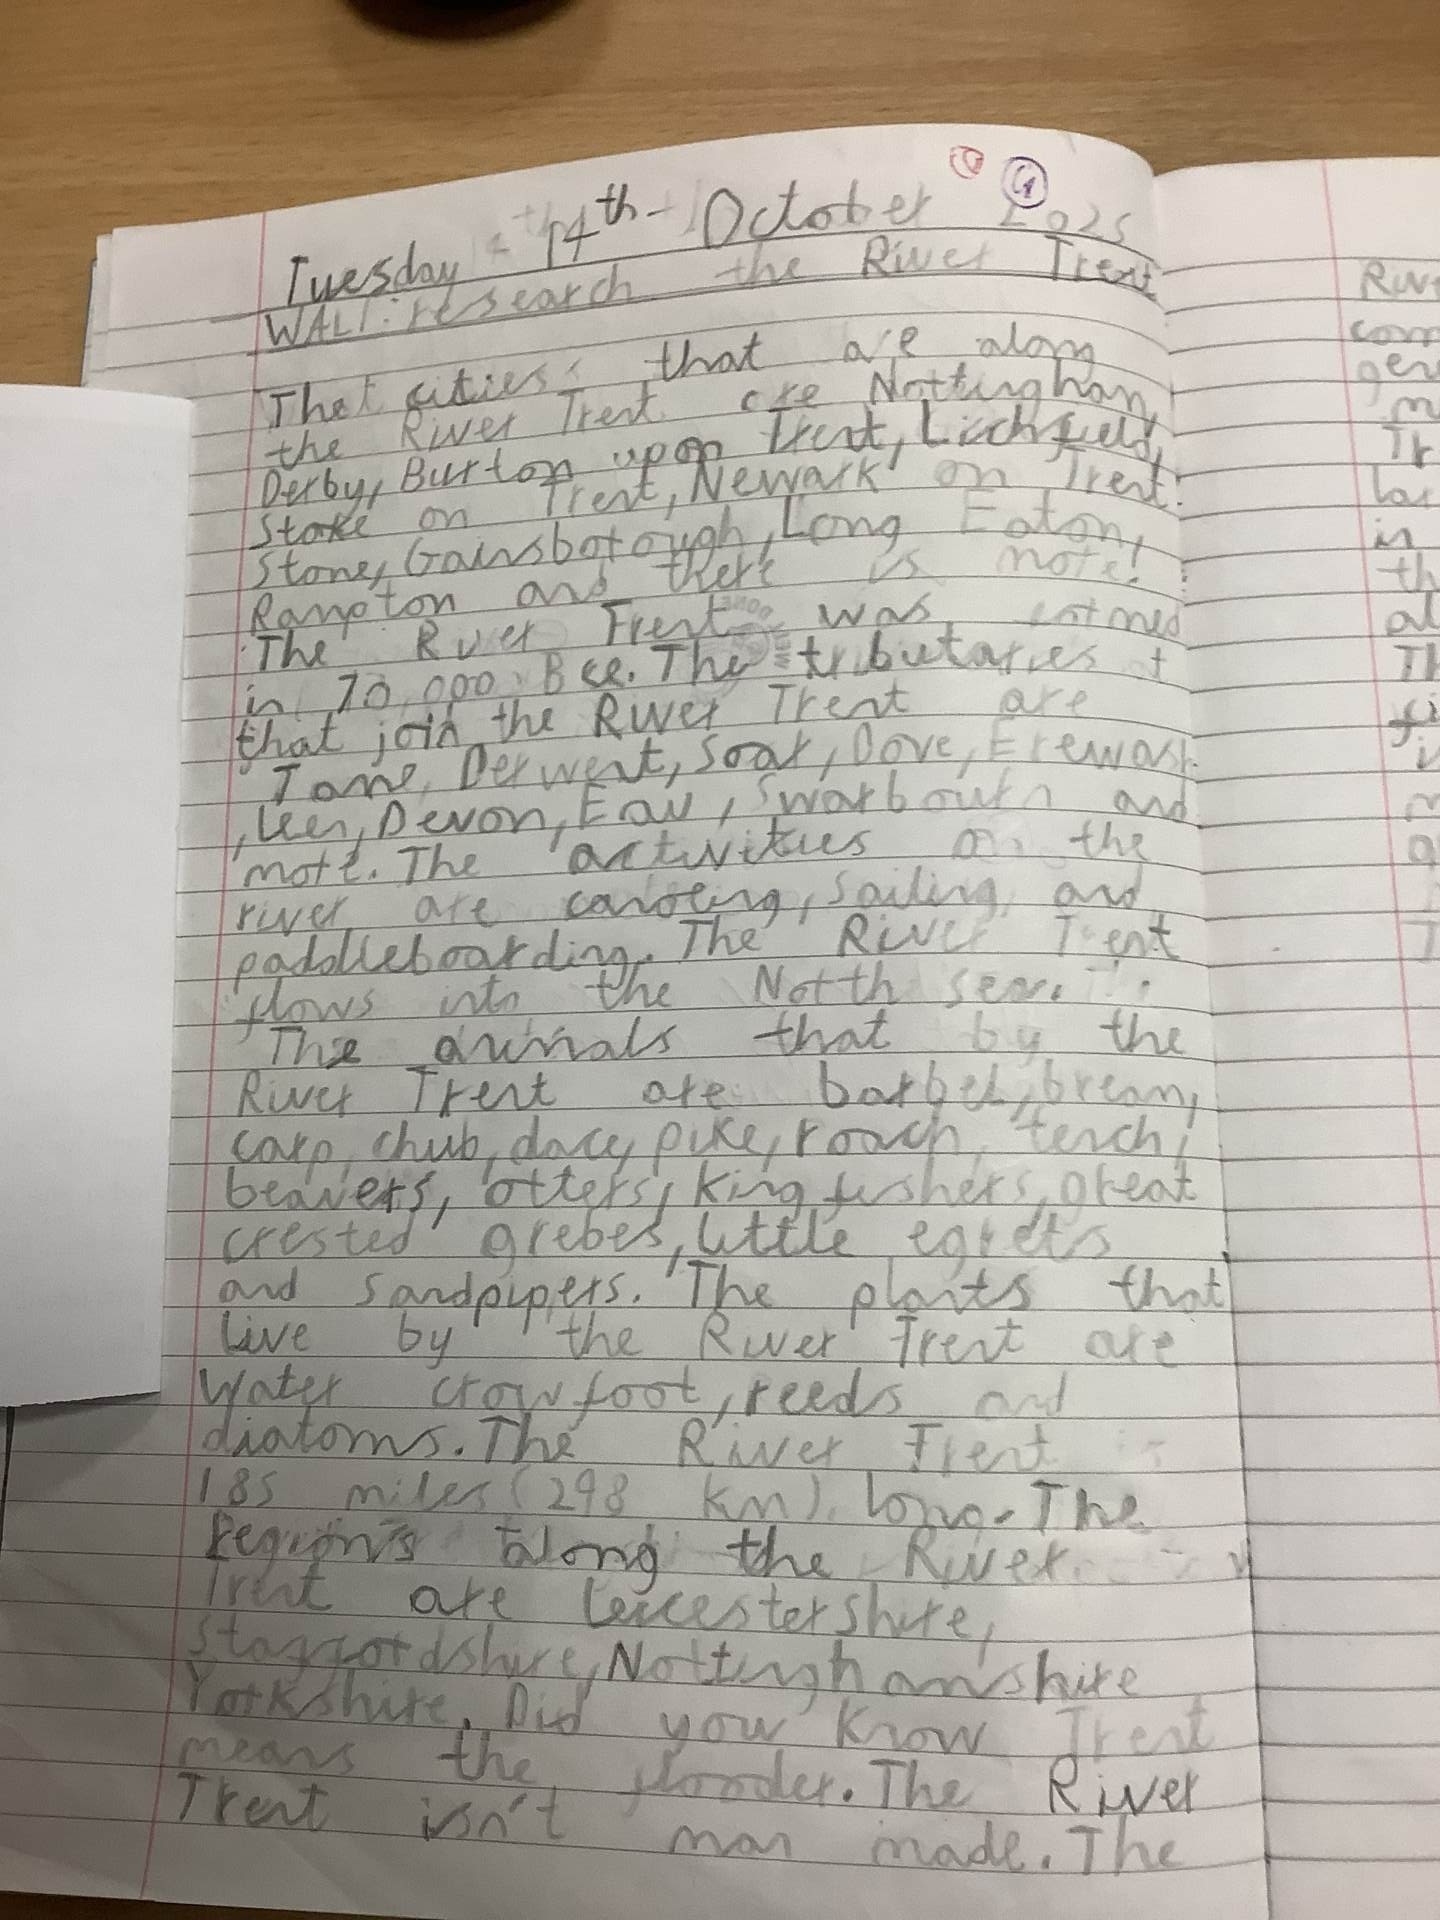 Tuesday 14th October 2025
WALT: research the River Trent
The cities that are along
the River Trent are Nottingham,
Derby, Burton upon Trent, Lichfield,
Stoke on Trent, Newark on Trent.
Stone, Gainsborough, Long Eaton,
Rampton and there is more!
The River Trent was
in 70,000 Bce. The tributaries
that join the River Trent are
Tame, Derwent, Soar, Dove, Erewash
, Leen, Devon, Eau, Swarbourn and
more. The activities on the
river are canoeing, sailing, and
paddleboarding. The River Trent
flows into the North sea.
The animals that by the
River Trent are barbel, bream,
carp, chub, dace, pike, roach, tench,
beavers, otters, king fishers, great
crested grebes, little egrets
and sandpipers. The plants that
live by the River Trent are
Water crowfoot, reeds and
diatoms. The River Trent is
185 miles (298 km) long. The
regions along the River
Trent are Leicestershire,
Staffordshire, Nottinghamshire
Yorkshire. Did you know Trent
means the flooder. The River
Trent isn't man made. The
Rive
com
gen
m
Tr
lar
in
th
al
Th
fi